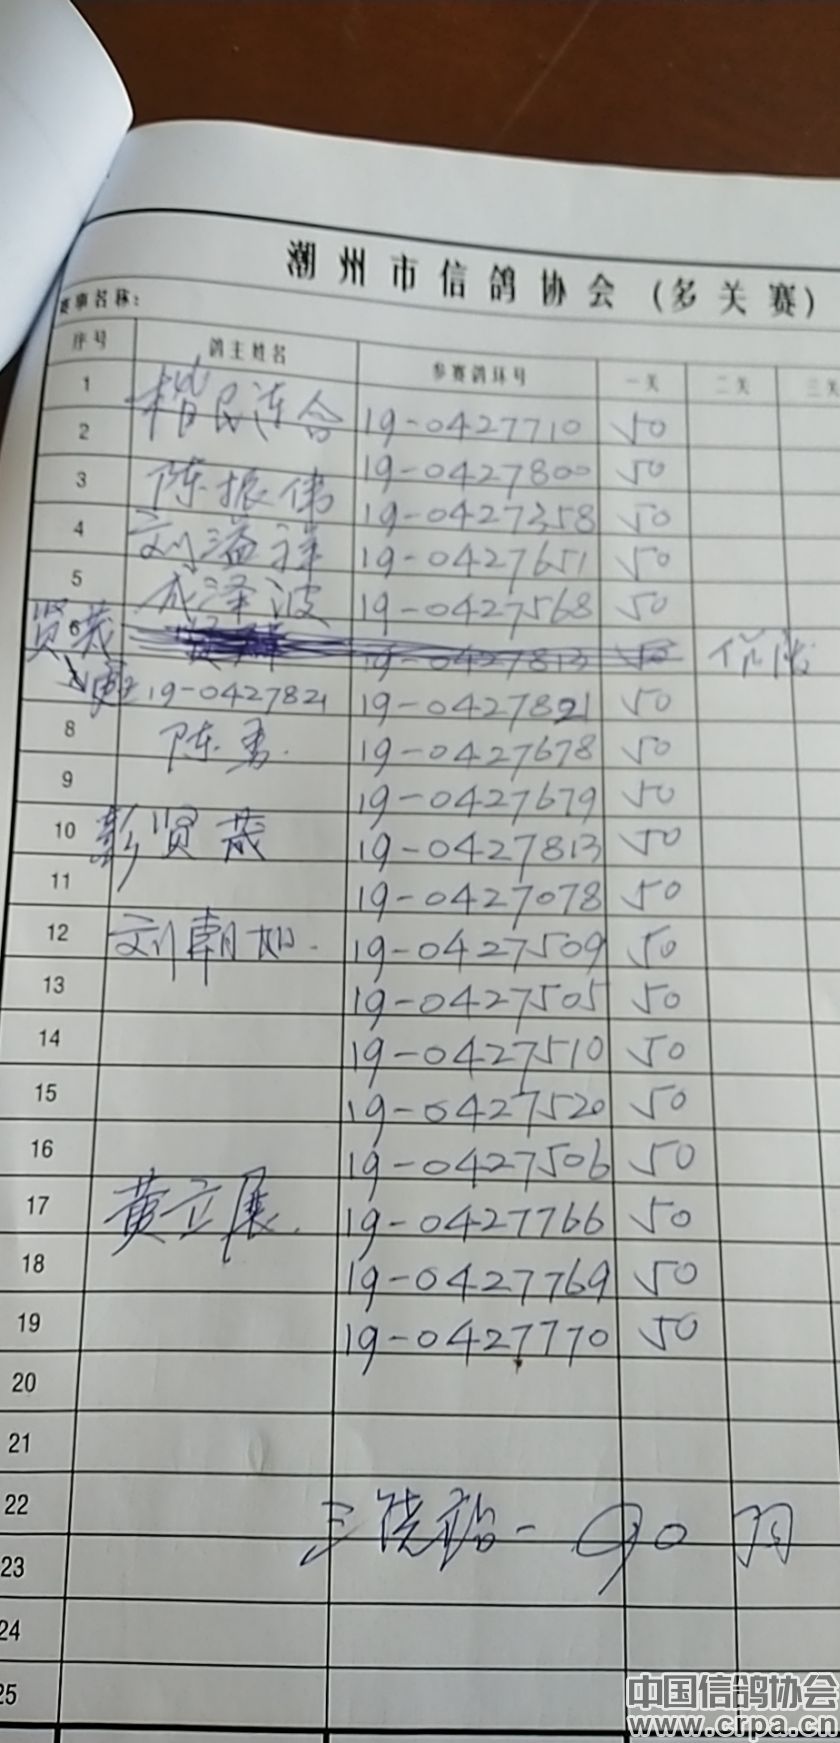 潮州市信鸽协会（多关赛）
赛事名称：
序号 鸽主姓名 参赛鸽环号 一关 二关 三关
1
2 民连合 19-0427710 50
19-0427800 50
3 陈振伟 19-0427358 50
4 刘溢祥 19-0427651 50
5 成泽波 19-0427568 50
贤茂 6 19-0427813 50
19-0427821 19-0427821 50
8 陈勇. 19-0427678 50
9 19-0427679 50
10 彭贤茂 19-0427813 50
11 19-0427078 50
12 刘朝如. 19-0427509 50
13 19-0427505 50
14 19-0427510 50
15 19-0427520 50
16 19-0427506 50
17 黄立展. 19-0427766 50
18 19-0427769 50
19 19-0427770 50
20
21
22
23
24
25
中国信鸽协会
www.crpa.cn